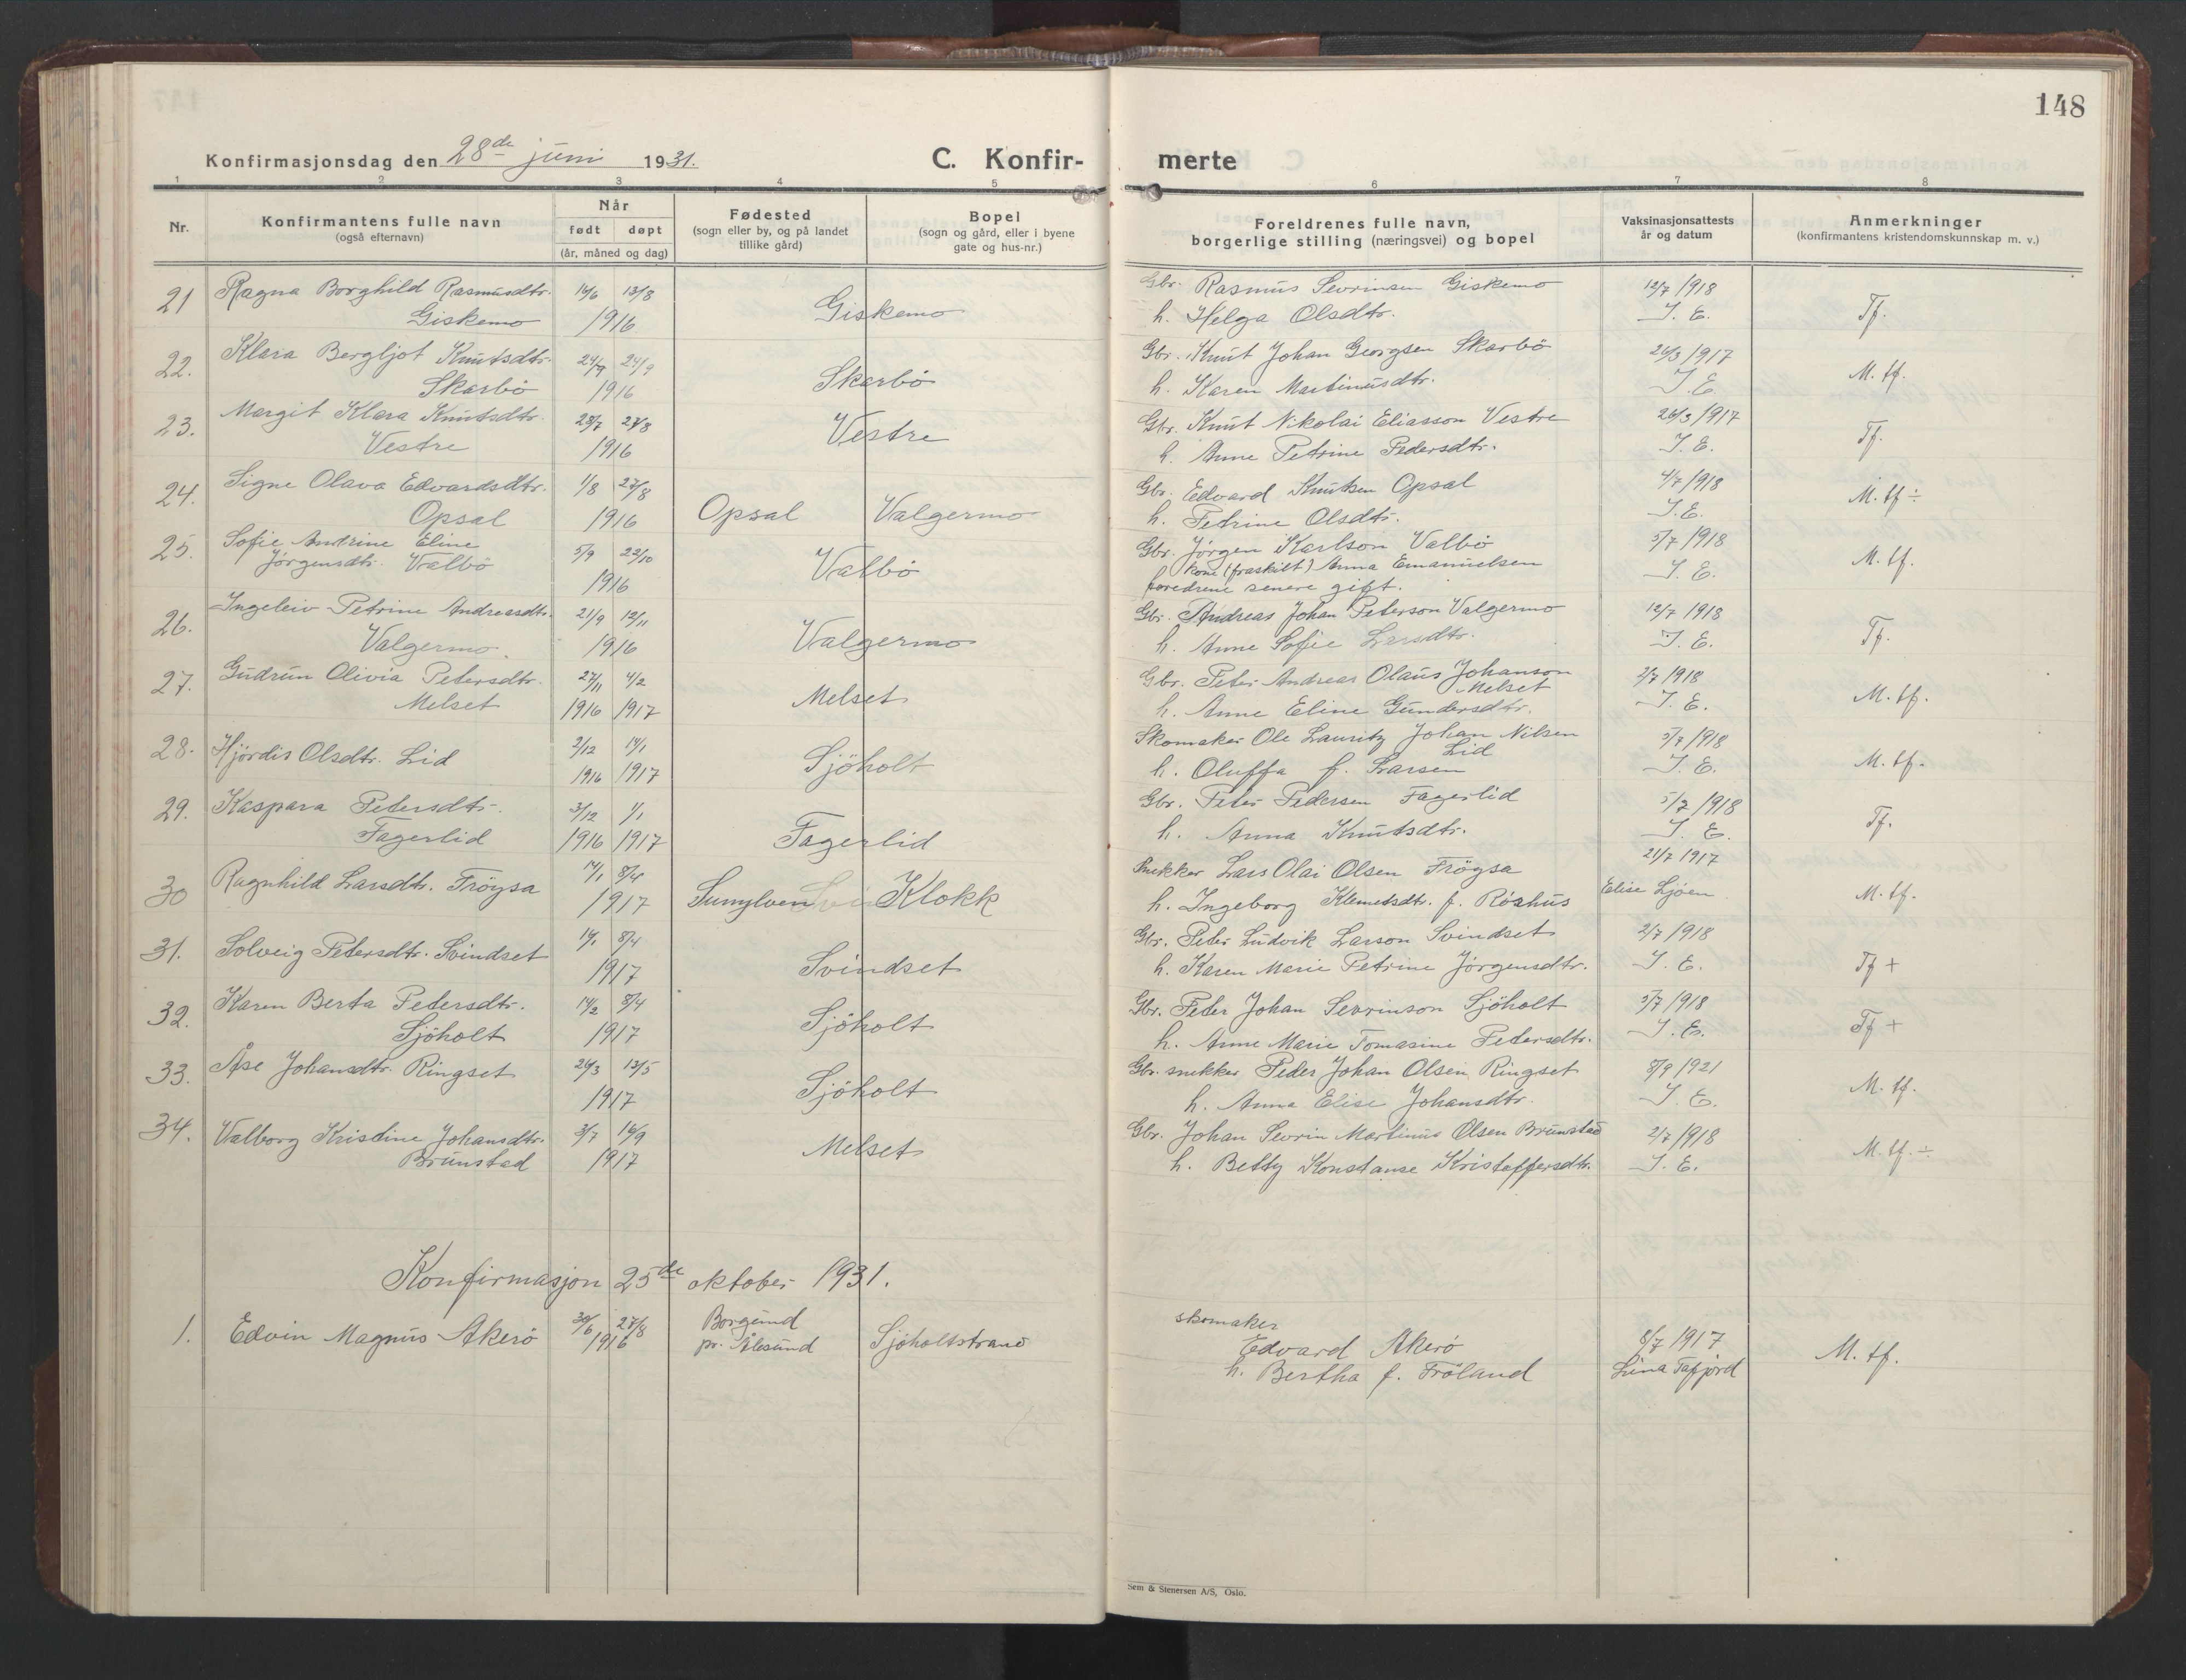 148
Konfirmasjonsdag den 28de juni 1931.
C. Konfir-
merte
1 2 3 4 5 6 7 8
Nr.
Konfirmantens fulle navn
(også efternavn)
Når
født døpt
(år, måned og dag)
Fødested
(sogn eller by, og på landet
tillike gård)
Bopel
(sogn og gård, eller i byene
gate og hus-nr.)
Foreldrenes fulle navn,
borgerlige stilling (næringsvei) og bopel
Vaksinasjonsattests
år og datum
Anmerkninger
(konfirmantens kristendomskunnskap m. v.)
21 Ragna Borghild Rasmusdtr. 13/8 Gbr. Rasmus Sevrinsen Giskemo 12/7 1918
Giskemo 1916 Giskemo h. Helga Olsdtr. I. E. Tf.
22. Klara Bergljot Knutsdtr. 24/9 Gbr. Knut Johan Georgsen Skarbö 26/3 1917
Skarbö 1916 Skarbö h. Karen Martinusdtr. I. E M. tf.
23. Margit Klara Knutsdtr. 23/7 27/8 Gbr. Knut Nikolai Eliasson Vestre 26/3 1917
Vestre 1916 Vestre h. Anne Petrine Pedersdtr. I. E. Tf.
24. Signe Olava Edvardsdtr. 1/8 27/8 Gbr. Edvard Knutsen Opsal 4/7 1918
Opsal 1916 Opsal Valgermo h. Petrine Olsdtr. I. E. M. tf ÷
25. Sofie Andrine Eline 5/9 22/10 Gbr. Jörgen Karlson Valbö 5/7 1918
Jörgensdtr. Valbö 1916 Valbö kone (fraskilt) Anna Emanuelsen I. E. M. tf.
foreldrene senere gift.
26. Ingeleiv Petrine Andreasdtr. 21/9 12/11 Gbr. Andreas Johan Peterson Valgermo 12/7 1918
Valgermo. 1916 Valgermo h. Anne Sofie Larsdtr. I. E. Tf.
27. Gudrun Olivia Petersdtr. 27/11 4/2 Gbr. Peter Andreas Olaus Johanson 2/7 1918
Melset 1916 1917 Melset Melset
h. Anne Eline Gundersdtr. I. E. M. tf.
28. Hjördis Olsdtr. Lid 2/12 14/1 Skomaker Ole Lauritz Johan Nilsen 5/7 1918
1916 1917 Sjöholt Lid
h. Oluffa f. Larsen I. E. M. tf.
29. Kaspara Petersdtr. 3/12 1/1 Gbr. Peter Pedersen Fagerlid 5/7 1918
Fagerlid 1916 1917 Fagerlid h. Anna Knutsdtr. I. E. Tf.
30 Ragnhild Larsdtr. Fröysa 14/1 8/4 Snekker Lars Olai Olsen Fröysa 21/7 1917
1917 Sunylven Klokk h. Ingeborg Klemetsdtr. f. Röshus Elise Ljöen M. tf.
31. Solveig Petersdtr. Svindset 8/4 Gbr. Peter Ludvik Larson Svindset 2/7 1918
1917 Svindset h. Karen Marie Petrine Jörgensdtr. I. E. Tf +
32. Karen Berta Pedersdtr. 14/2 8/4 Gbr. Peder Johan Sevrinson Sjöholt 5/7 1918
Sjöholt 1917 Sjöholt h. Anne Marie Tomasine Pedersdtr. I. E. Tf +
33. Åse Johansdtr. Ringset 13/5 Gbr. snekker Peder Johan Olsen Ringset 8/9 1921
1917 Sjöholt h. Anna Elise Johansdtr. I. E. M. tf.
34. Valborg Kristine Johansdtr. 3/7 16/9 Gbr. Johan Sevrin Martinus Olsen Brunstad 2/7 1918
Brunstad 1917 Melset h. Betty Konstanse Kristoffersdtr. I. E. M. tf. ÷
Konfirmasjon 25de oktober 1931.
1. Edvin Magnus Akerö 30/6 27/8 Borgund skomaker
1916 pr. Ålesund Sjöholtstrand Edvard Akerö 8/7 1917
h. Bertha f. Fröland Lina Tafjord M. tf.
Sem & Stenersen A/S, Oslo.